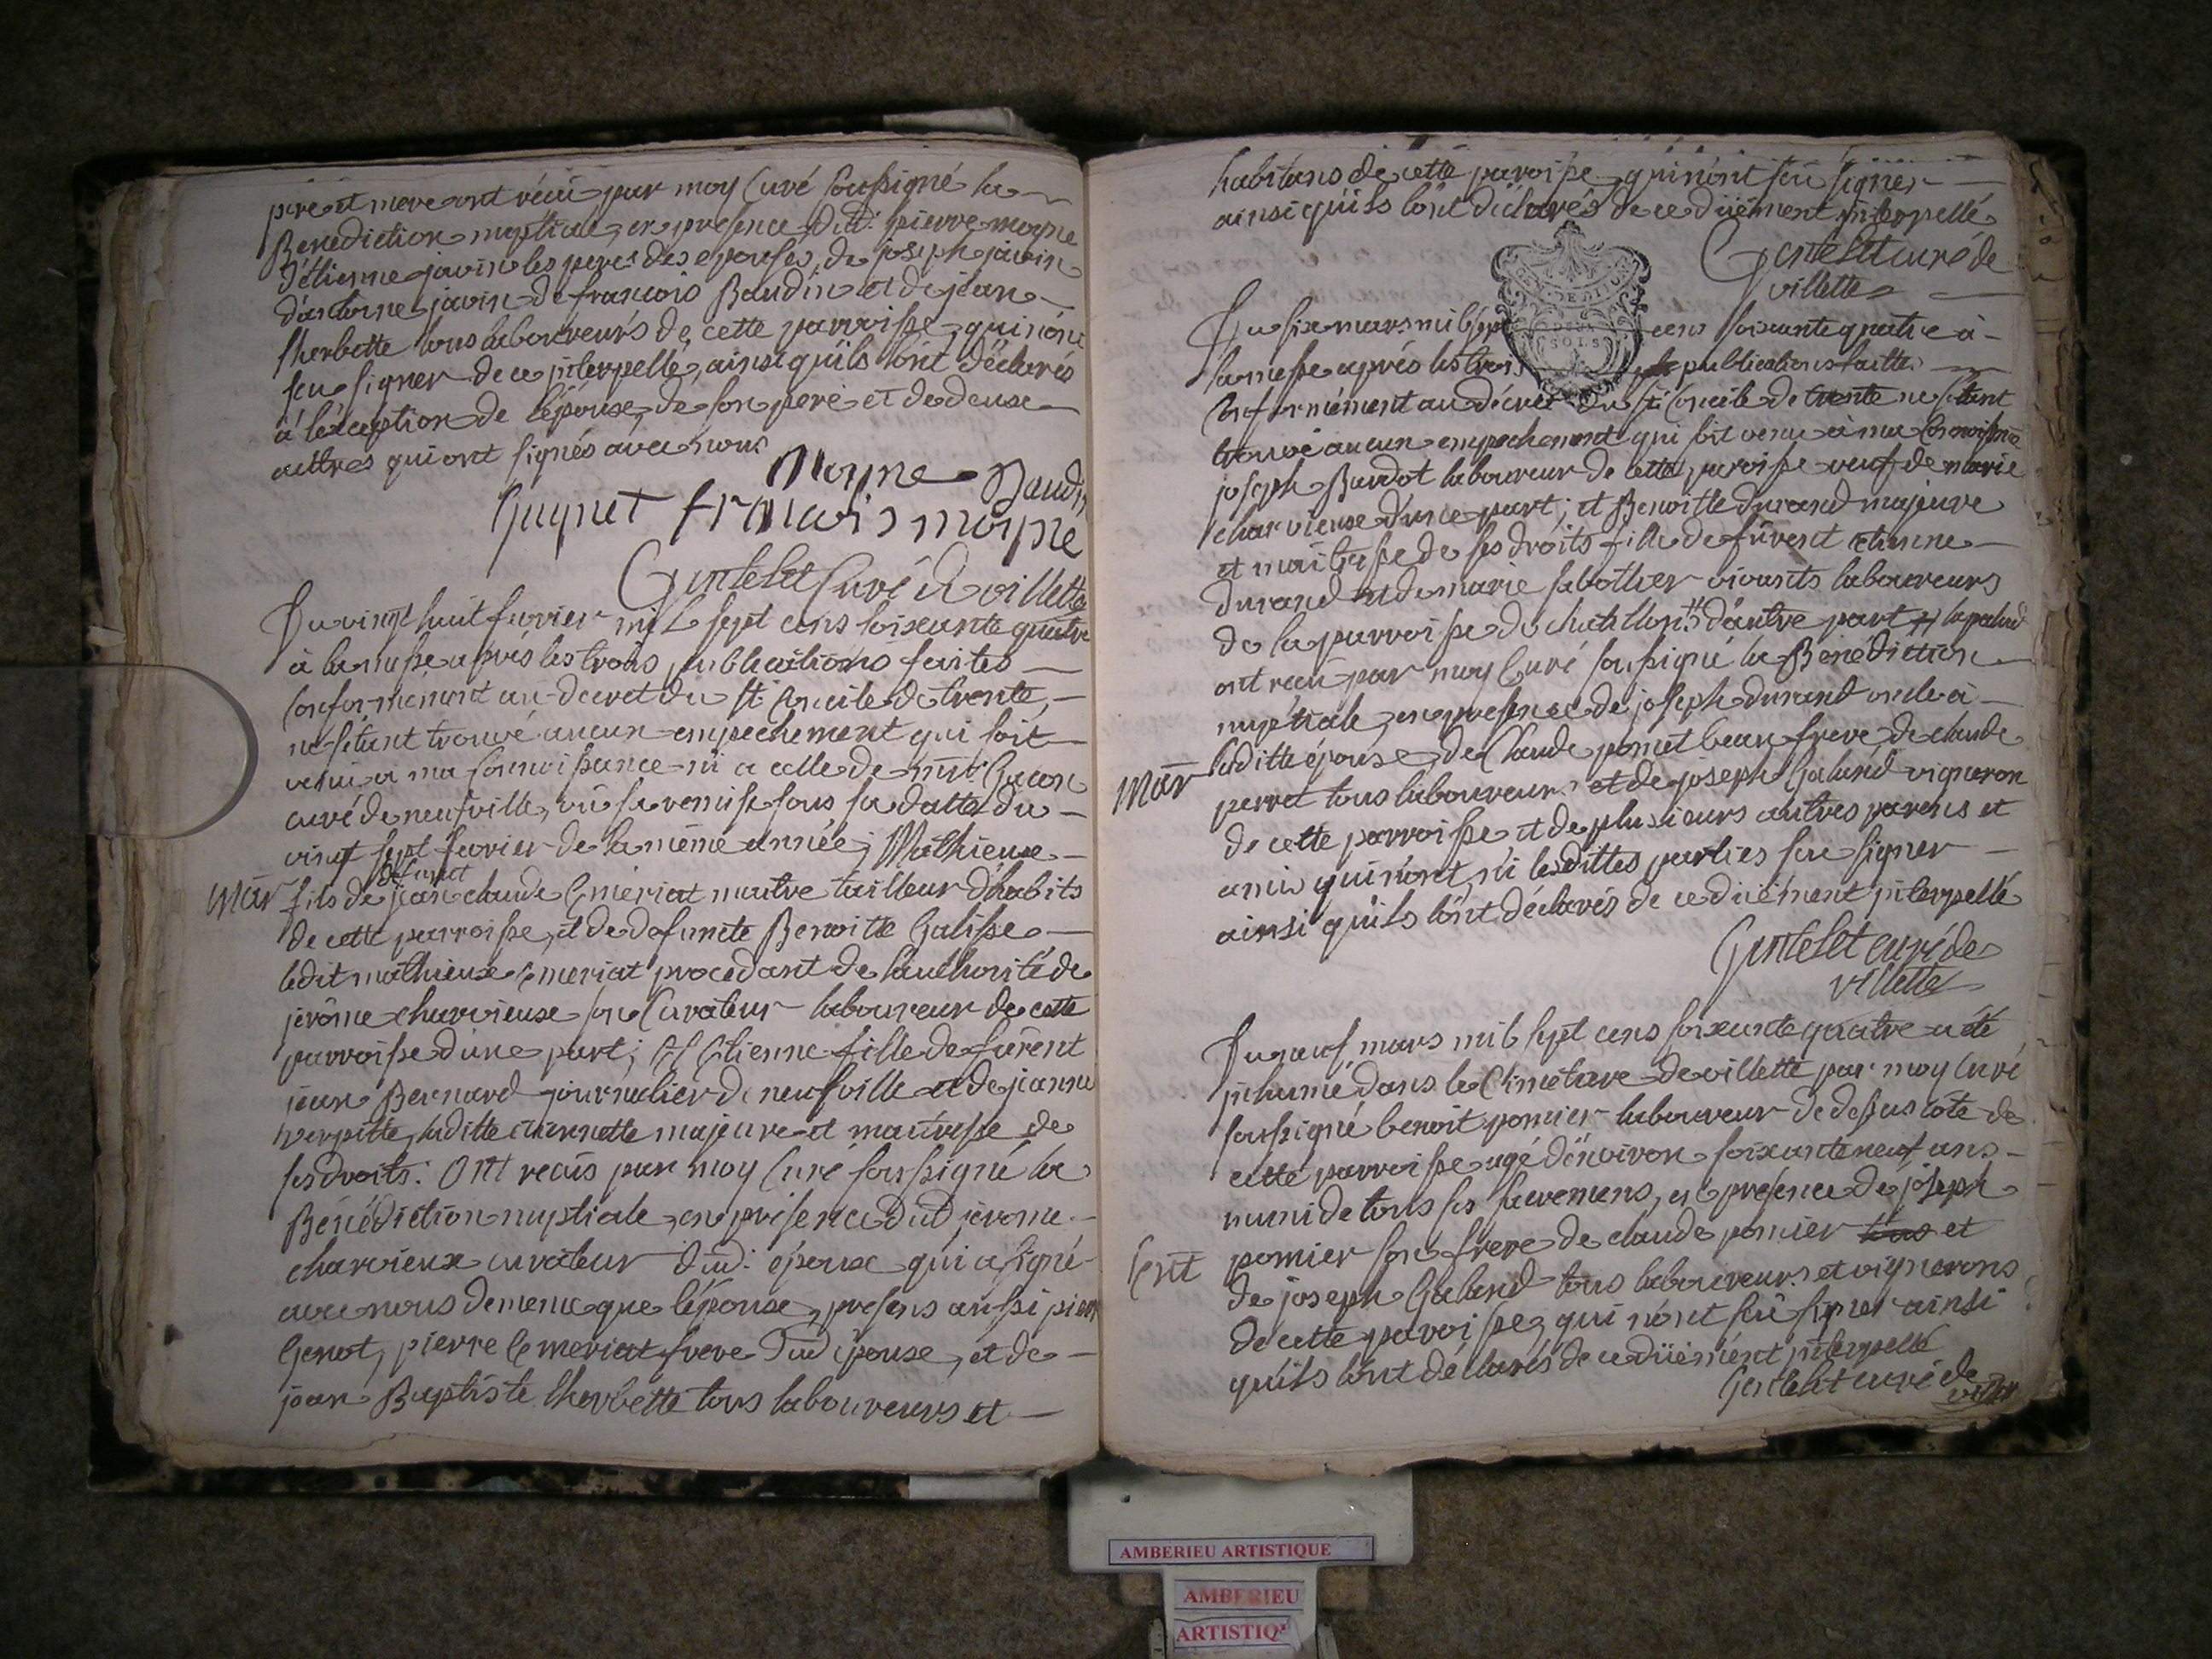 pere et mere ont recû par moy Curé soussigné la
Benediction nuptiale, en presence dud: pierre moyne
d'étienne javin les peres des epouses, de joseph javin
d'antoine javin de françois Baudin et de jean
lherbette tous laboureurs de cette parroisse, qui n'ont
seu signer de ce interpellé, ainsi qu'ils l'ont déclarés
à l'exception de l'épouse, de son pere et de deux
autres qui ont signés avec nous
Moyne Baudin
Guynet francois moyne
Gentelet Curé de villette
Du vingt huit fevrier mil sept cens soixante quatre
à la messe après les trois publications faites
Conformément au decret du st. Concile de trente,
ne s'étant trouvé aucun empechement qui soit
venu a ma connoissance ni a celle de mr. Gacon
curé de neufville, vû sa remise sous sa datte du
vingt sept fevrier de la même année; Mathieux
defunct
Mar fils de jean claude Emeriat maitre tailleur d'habits
de cette parroisse, et de defuncte Benoitte Galisse
ledit mathieux Emeriat procedant de l'authorité de
jérôme charvieux son Curateur laboureur de cette
parroisse d'une part; Et Etienne fille de fûrent
jean Bernard journalier de neufville et de jeanne
verpitte, laditte etiennette majeure et maitresse de
ses droits: Ont recûs par moy Curé soussigné la
Bénédiction nuptiale, en présence dud jerome
charvieux curateur dud: époux qui a signé
avec nous de meme que l'épouse, presens aussi pierre
Genot, pierre Emeriat frere dud époux, et de
jean Baptiste lherbette tous laboureurs et
habitans de cette paroisse qui n'ont sçu signer
ainsi qu'ils l'ont déclarés de ce düement interpellé
Gentelet curé de
villette
Du six mars mil sept cens soixante quatre à
la messe après les trois publications faittes
Conformément au décret du st. Concile de trente ne s'étant
trouvé aucun empechement qui soit venu à ma Connoissance
joseph Bardot laboureur de cette paroisse veuf de marie
charvieux d'une part; et Benoitte durand majeure
et maitresse de ses droits fille de fûrent etienne
Durand et de marie sabothier vivants laboureurs
de la parroisse de chatillon # d'autre part # la palud
ont recû par moy Curé soussigné la Bénédiction
nuptiale, en presence de joseph durand oncle à
laditte épouse, de Claude pomet beau frere, de claude
Mar perret tous laboureurs et de joseph Galand vigneron
de cette parroisse et de plusieurs autres parens et
amis qui n'ont, ni lesdittes parties seu signer
ainsi qu'ils l'ont déclarés de ce düement interpellé
Gentelet curé de
villette
Du neuf mars mil sept cens soixante quatre a été
inhumé dans le Cimetiere de villette par moy Curé
soussigné benoit pomier laboureur de dessus cote de
cette parroisse agé d'environ soixante neuf ans
muni de tous ses sacremens, en présence de joseph
Ent pomier son frere de claude pomier tous et
de joseph Galand tous laboureurs et vignerons
de cette paroisse, qui n'ont sçû signer ainsi
qu'ils l'ont déclarés de ce düement interpellé
Gentelet curé de
villette
AMBERIEU ARTISTIQUE
AMBERIEU
ARTISTIQ